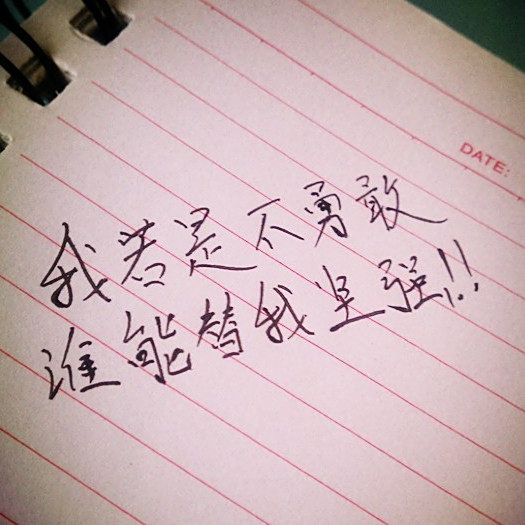 DATE:
我若是不勇敢
谁能替我坚强!!